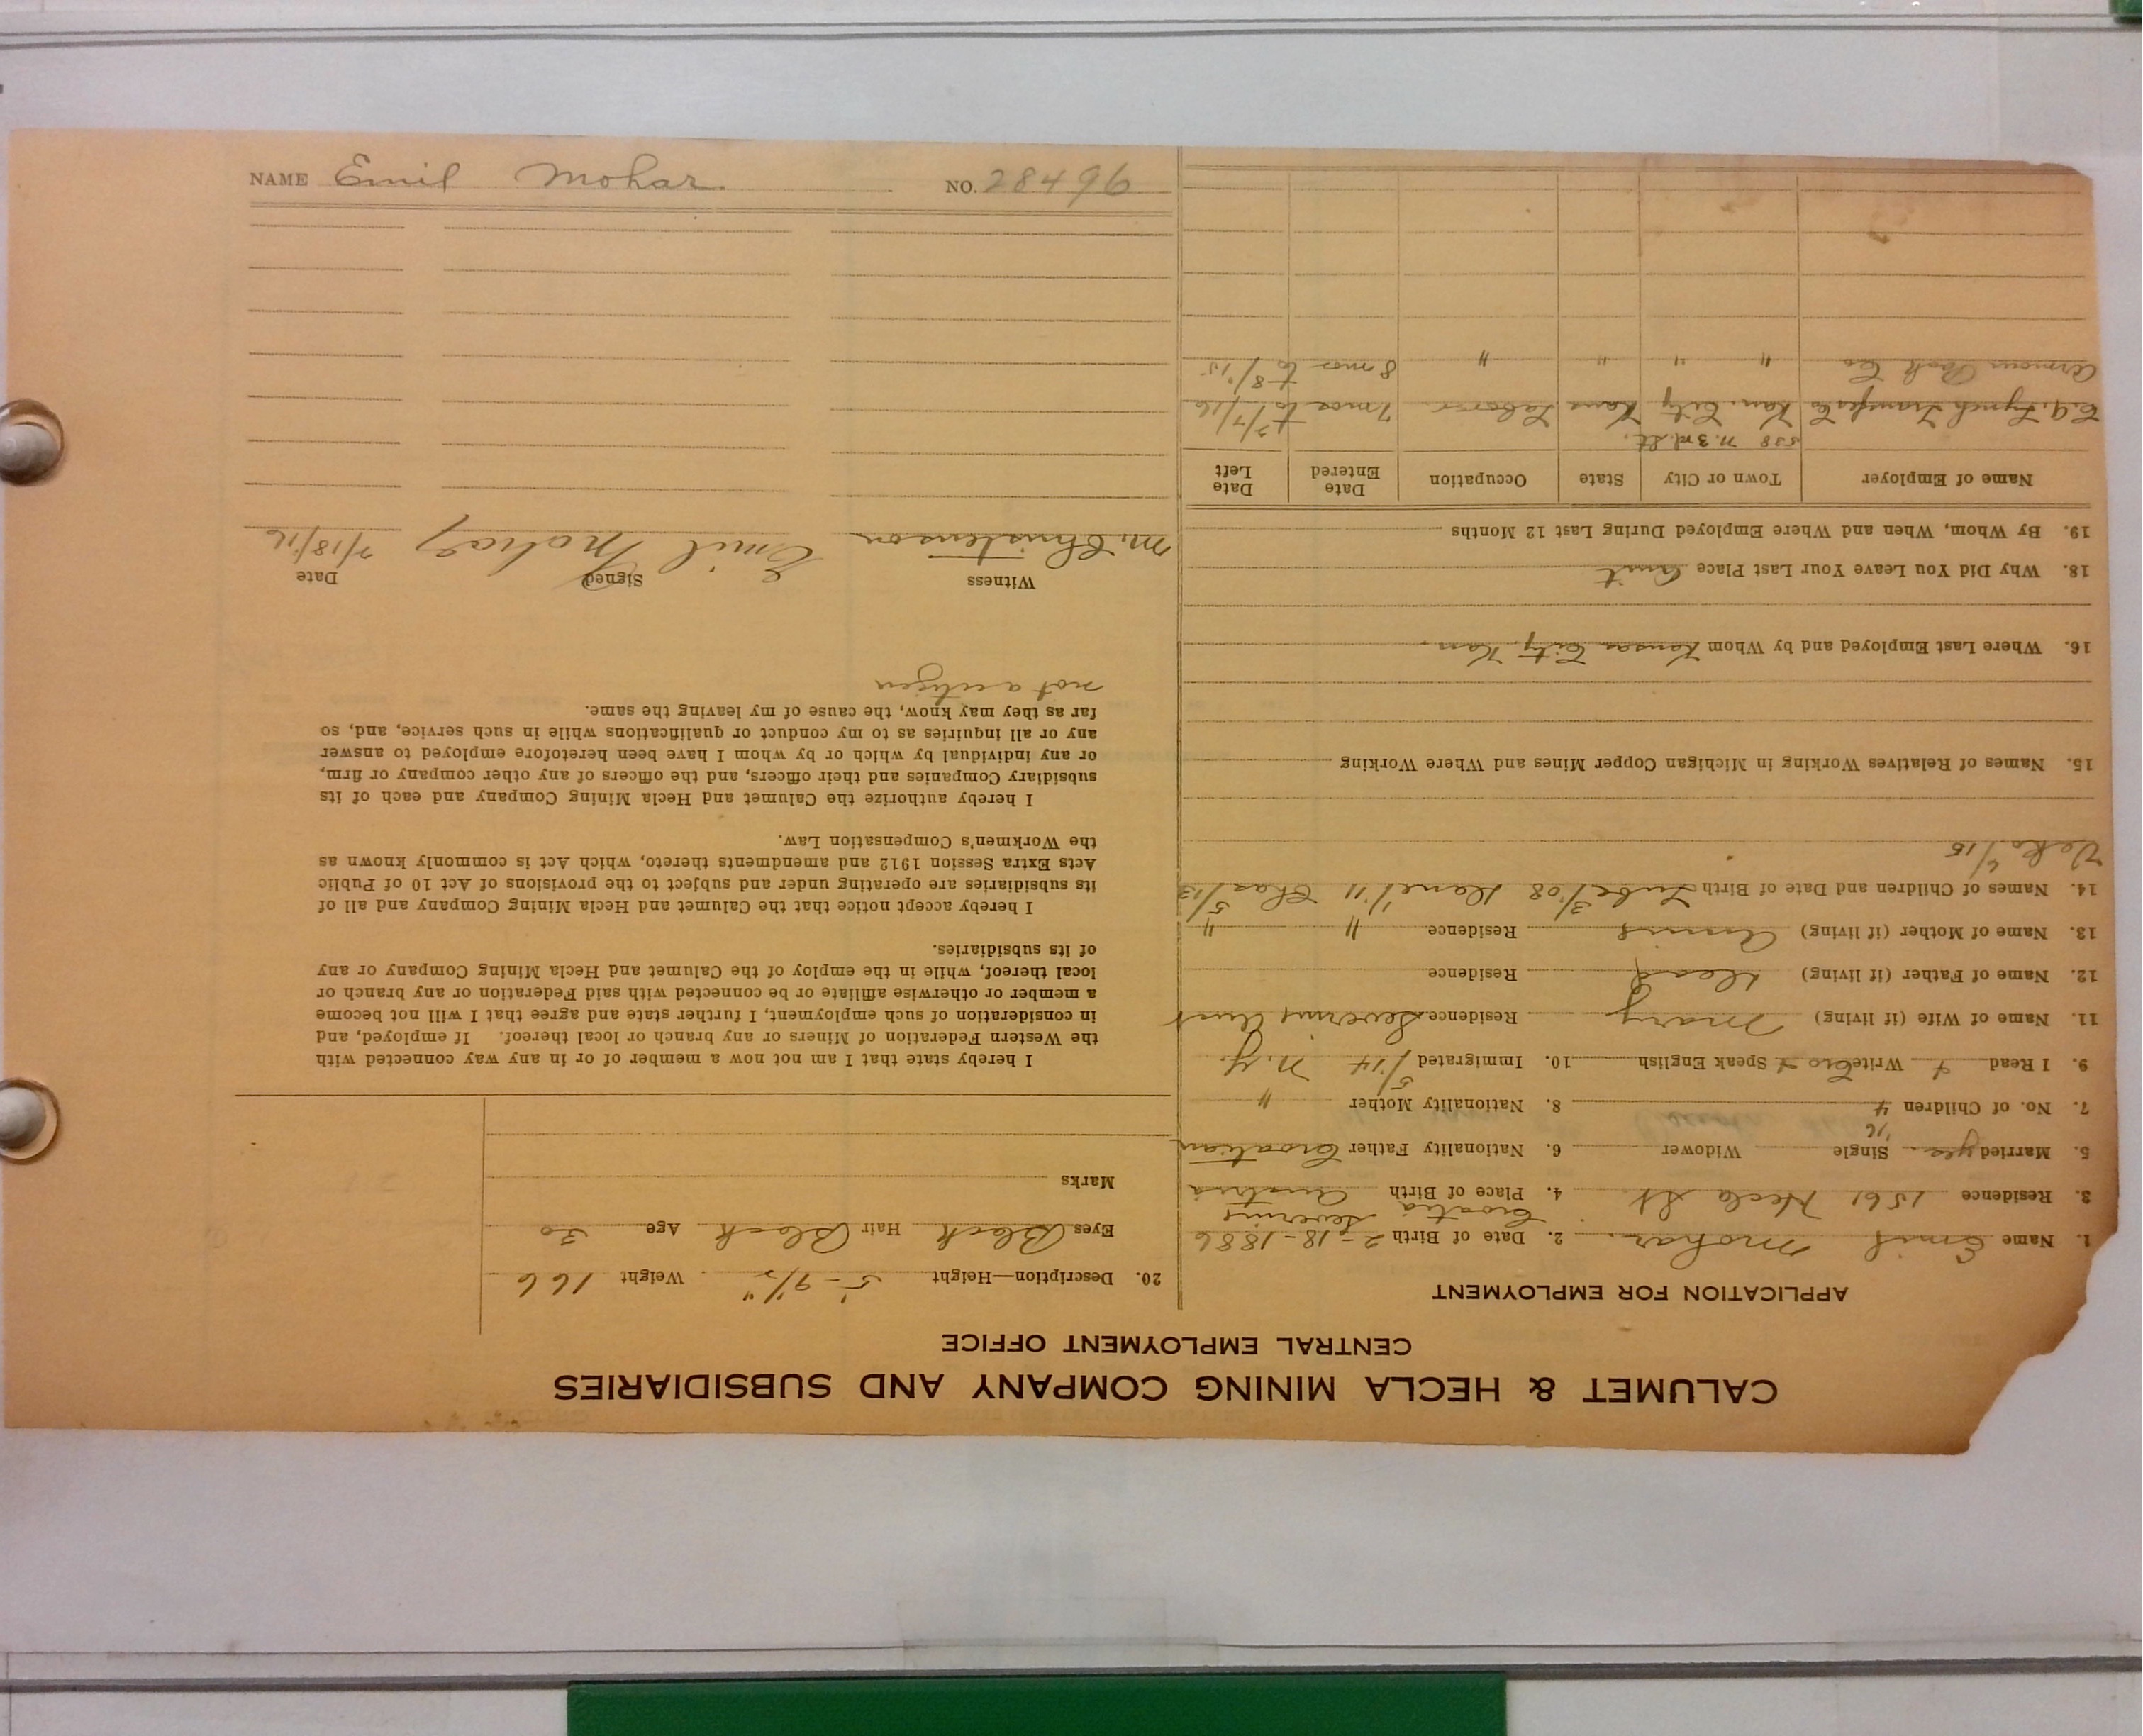 CALUMET & HECLA MINING COMPANY AND SUBSIDIARIES
CENTRAL EMPLOYMENT OFFICE
APPLICATION FOR EMPLOYMENT
1. Name Emil Mohar. 2. Date of Birth 2-18-1886
Croatia Severin
3. Residence 1561 Hecla St. 4. Place of Birth Austria
5. Married yes. Single Widower 6. Nationality Father Croatian
'16
7. No. of Children 4 8. Nationality Mother "
9. I Read + Write Cro + Speak English 10. Immigrated 5/14 N.Y.
11. Name of Wife (if living) Mary Residence Severin Aust
12. Name of Father (if living) Dead Residence
13. Name of Mother (if living) Residence " "
14. Names of Children and Date of Birth 3/'08 1/'11 Chas 5/13
4/15
15. Names of Relatives Working in Michigan Copper Mines and Where Working
16. Where Last Employed and by Whom Kansas City, Kan.
18. Why Did You Leave Your Last Place Quit
19. By Whom, When and Where Employed During Last 12 Months
Name of Employer Town or City State Occupation Date Entered Date Left
538 N. 3rd. St.
Lynch Transfer Co Kan. City Kans Laborer 7 mos to 7/7/16
Armour Pack Co " " " " 8 mos to 8/'15
20. Description—Height 5'-9½" Weight 166
Eyes Black Hair Black Age 30
Marks
I hereby state that I am not now a member of or in any way connected with
the Western Federation of Miners or any branch or local thereof. If employed, and
in consideration of such employment, I further state and agree that I will not become
a member or otherwise affiliate or be connected with said Federation or any branch or
local thereof, while in the employ of the Calumet and Hecla Mining Company or any
of its subsidiaries.
I hereby accept notice that the Calumet and Hecla Mining Company and all of
its subsidiaries are operating under and subject to the provisions of Act 10 of Public
Acts Extra Session 1912 and amendments thereto, which Act is commonly known as
the Workmen's Compensation Law.
I hereby authorize the Calumet and Hecla Mining Company and each of its
subsidiary Companies and their officers, and the officers of any other company or firm,
or any individual by which or by whom I have been heretofore employed to answer
any or all inquiries as to my conduct or qualifications while in such service, and, so
far as they may know, the cause of my leaving the same.
not a citizen
Witness Signed Date
M. Christenson Emil 7/18/16
NAME Emil Mohar. NO. 28496